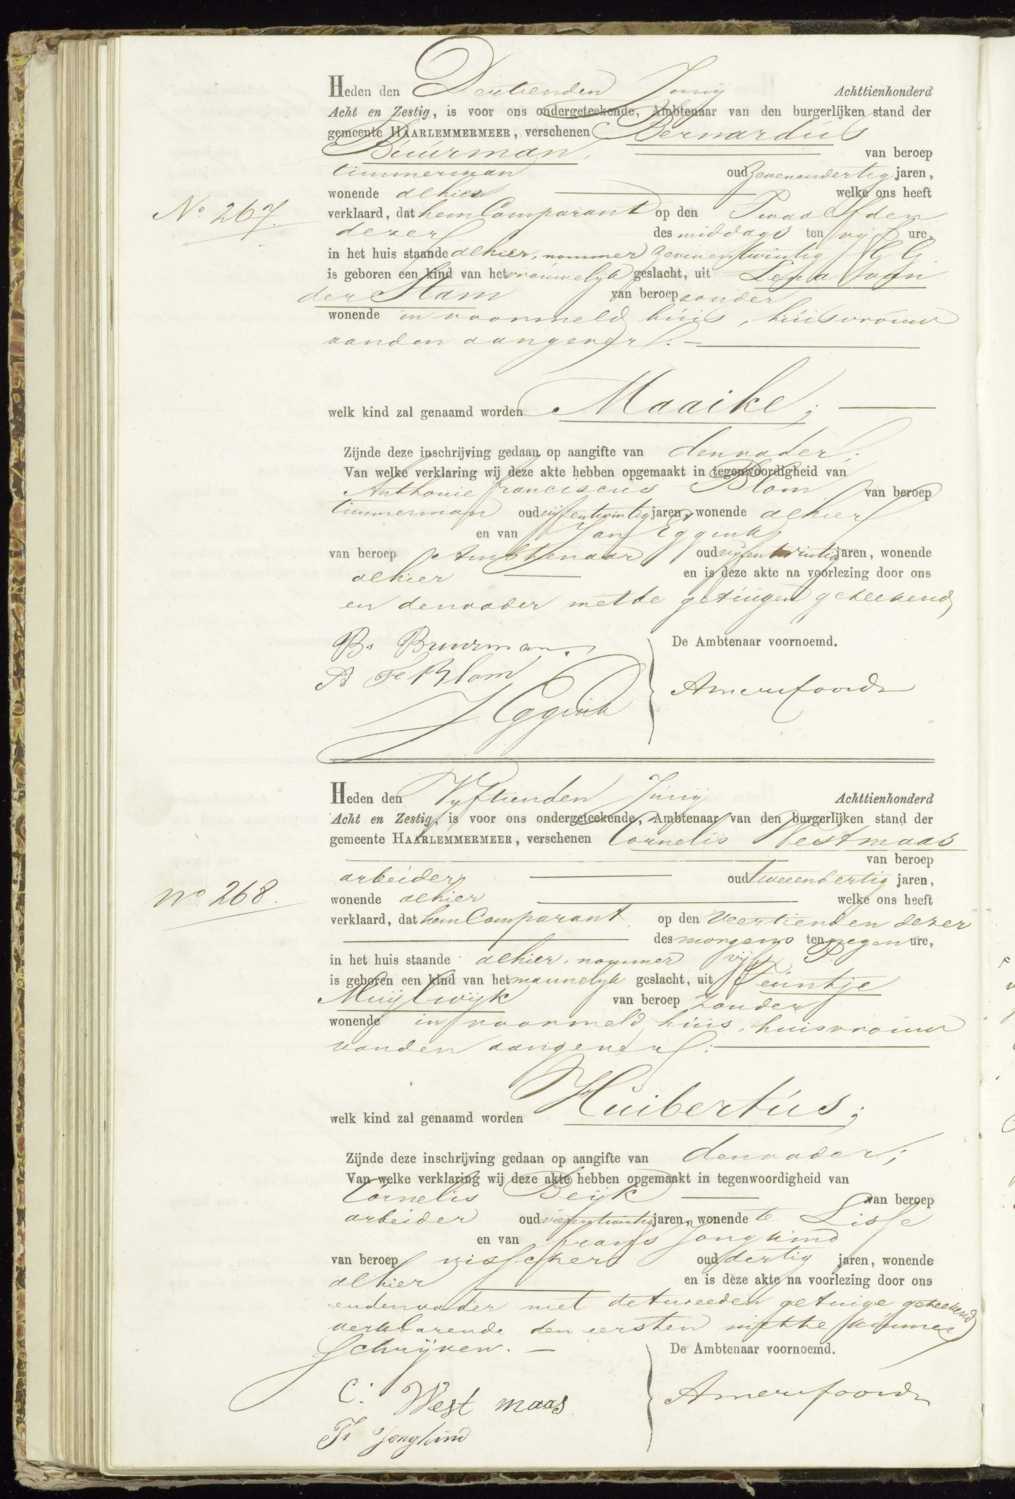 Heden den Dertienden Junij Achttienhonderd
Acht en Zestig, is voor ons ondergeteekende, Ambtenaar van den burgerlijken stand der
gemeente HAARLEMMERMEER, verschenen Bernardus
Buurman, van beroep
timmerman oud zevenendertig jaren,
wonende alhier welke ons heeft
No 267 verklaard, dat hem Comparant op den Twaalfden
dezer des middags ten vijf ure,
in het huis staande alhier, nommer zevenentwintig GG
is geboren een kind van het vrouwelijk geslacht, uit Lena van
der Stam van beroep zonder
wonende in voormeld huis, huisvrouw
van den aangever.
welk kind zal genaamd worden Maaike;
Zijnde deze inschrijving gedaan op aangifte van den vader;
Van welke verklaring wij deze akte hebben opgemaakt in tegenwoordigheid van
Anthonie Franciscus Blom van beroep
timmerman oud vijfentwintig jaren, wonende alhier
en van Jan Eggink
van beroep Ambtenaar oud vijfentwintig jaren, wonende
alhier en is deze akte na voorlezing door ons
en den vader met de getuigen geteekend
Bs Buurman. De Ambtenaar voornoemd.
A Fs Blom
J Eggink Amersfoordt
Heden den Vijftienden Junij Achttienhonderd
Acht en Zestig, is voor ons ondergeteekende, Ambtenaar van den burgerlijken stand der
gemeente HAARLEMMERMEER, verschenen Cornelis Westmaas
van beroep
arbeider oud tweeendertig jaren,
No 268. wonende alhier welke ons heeft
verklaard, dat hem Comparant op den Veertienden dezer
des morgens ten negen ure,
in het huis staande alhier, nommer vijf P
is geboren een kind van het mannelijk geslacht, uit Teuntje
Muijlwijk van beroep zonder
wonende in voormeld huis, huisvrouw
van den aangever.
welk kind zal genaamd worden Huibertus;
Zijnde deze inschrijving gedaan op aangifte van den vader;
Van welke verklaring wij deze akte hebben opgemaakt in tegenwoordigheid van
Cornelis Beijk van beroep
arbeider oud jaren, wonende te Lisse
en van Frans Jongkind
van beroep visscher oud dertig jaren, wonende
alhier en is deze akte na voorlezing door ons
en den vader met de tweeden getuige geteekend
verklarende den eersten niet te kunnen
schrijven. De Ambtenaar voornoemd.
C: West maas Amersfoordt
Fs Jongkind